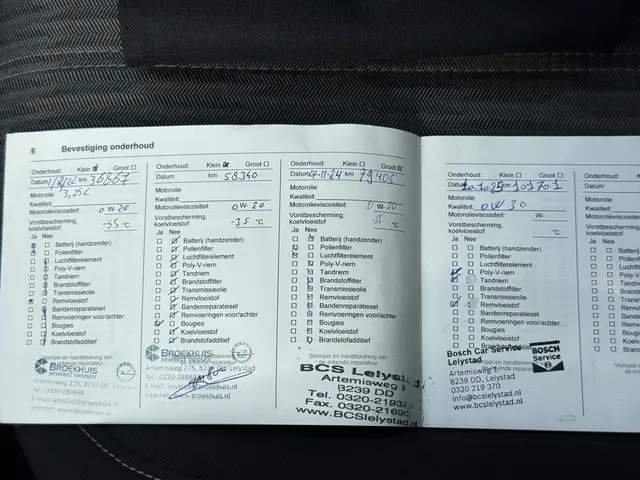 6 Bevestiging onderhoud
Onderhoud: Klein Groot
Datum km 36867
Motorolie 3,25L
Kwaliteit:
Motorolieviscositeit: 0W-20
Vorstbescherming, koelvloeistof -35 °C
Ja Nee
Batterij (handzender)
Pollenfilter
Luchtfilterelement
Poly-V-riem
Tandriem
Brandstoffilter
Transmissieolie
Remvloeistof
Bandenreparatieset
Remvoeringen voor/achter
Bougies
Koelvloeistof
Brandstofadditief
Stempel en handtekening van de erkende reparateur
BROEKHUIS
Artemisweg 275, 8239 DD Lelystad
Tel.: 0320-289898
E-mail: lelystad@broekhuis.nl
Internet: www.broekhuis.nl
Onderhoud: Klein Groot
Datum km 58340
Motorolie
Kwaliteit:
Motorolieviscositeit: 0W-20
Vorstbescherming, koelvloeistof -35 °C
Ja Nee
Batterij (handzender)
Pollenfilter
Luchtfilterelement
Poly-V-riem
Tandriem
Brandstoffilter
Transmissieolie
Remvloeistof
Bandenreparatieset
Remvoeringen voor/achter
Bougies
Koelvloeistof
Brandstofadditief
BROEKHUIS
Artemisweg 275, 8239 DD Lelystad
Tel.: 0320-289898
E-mail: lelystad@broekhuis.nl
Internet: www.broekhuis.nl
Onderhoud: Klein Groot
Datum 07-11-24 km 79405
Motorolie
Kwaliteit:
Motorolieviscositeit: 0W-20
Vorstbescherming, koelvloeistof °C
Ja Nee
Batterij (handzender)
Pollenfilter
Luchtfilterelement
Poly-V-riem
Tandriem
Brandstoffilter
Transmissieolie
Remvloeistof
Bandenreparatieset
Remvoeringen voor/achter
Bougies
Koelvloeistof
Brandstofadditief
Stempel en handtekening van de erkende reparateur
BCS Lelystad
Artemisweg
8239 DD
Tel. 0320-21937
Fax. 0320-21690
www.BCSlelystad.nl
Onderhoud: Klein Groot
Datum 20-10-25 km 101701
Motorolie
Kwaliteit: 0W30
Motorolieviscositeit: W-
Vorstbescherming, koelvloeistof °C
Ja Nee
Batterij (handzender)
Pollenfilter
Luchtfilterelement
Poly-V-riem
Tandriem
Brandstoffilter
Transmissieolie
Remvloeistof
Bandenreparatieset
Remvoeringen voor/achter
Bougies
Koelvloeistof
Brandstofadditief
Bosch Car Service
Lelystad
Artemisweg
8239 DD, Lelystad
0320 219 370
info@bcslelystad.nl
www.bcslelystad.nl
BOSCH
Service
Onderhoud:
Datum
Motorolie
Kwaliteit:
Ja Nee